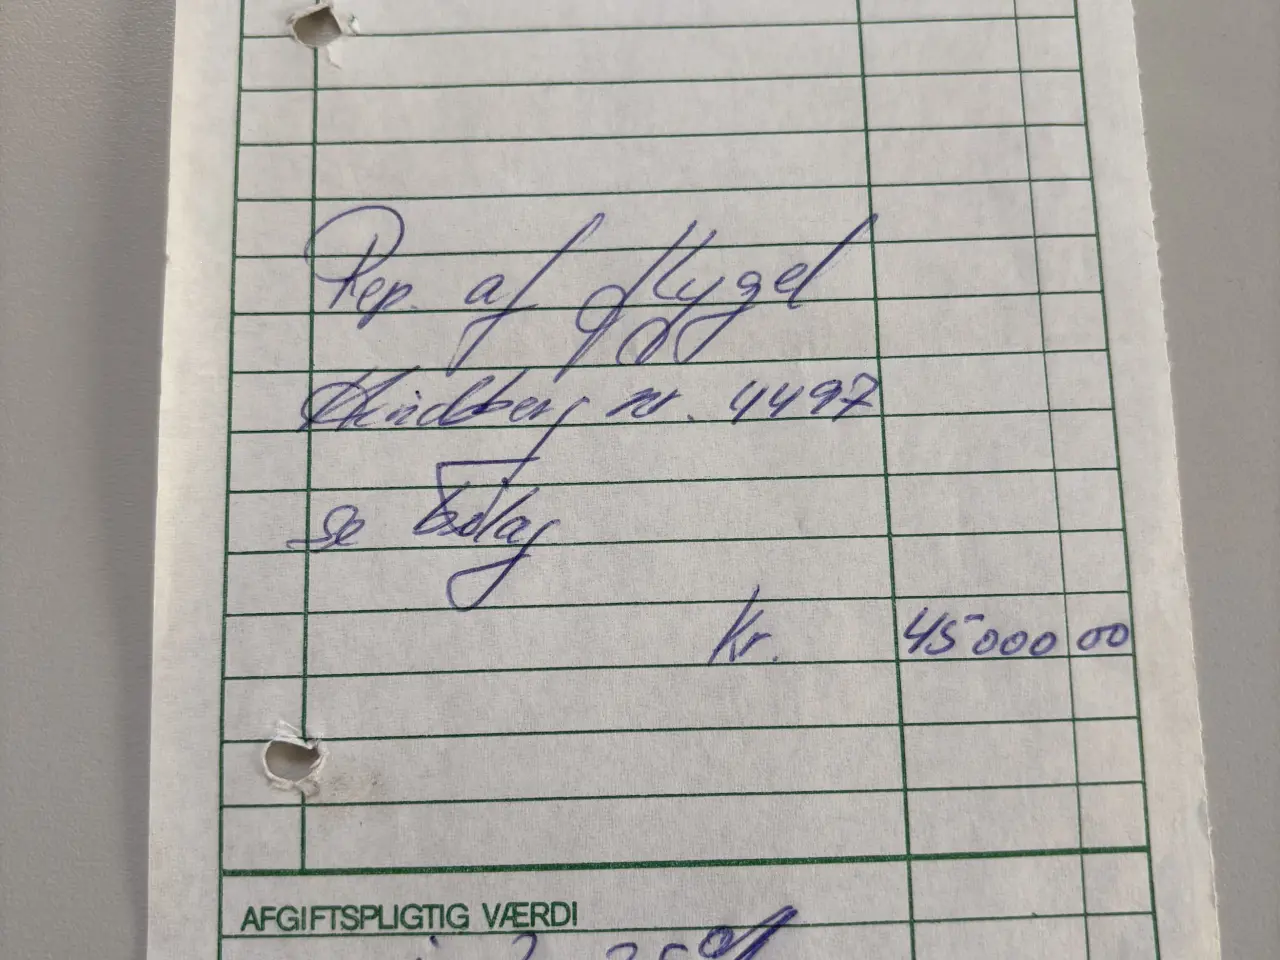 Rep. af Flygel
Lindberg nr. 4497
se bilag
Kr. 45000 00
AFGIFTSPLIGTIG VÆRDI